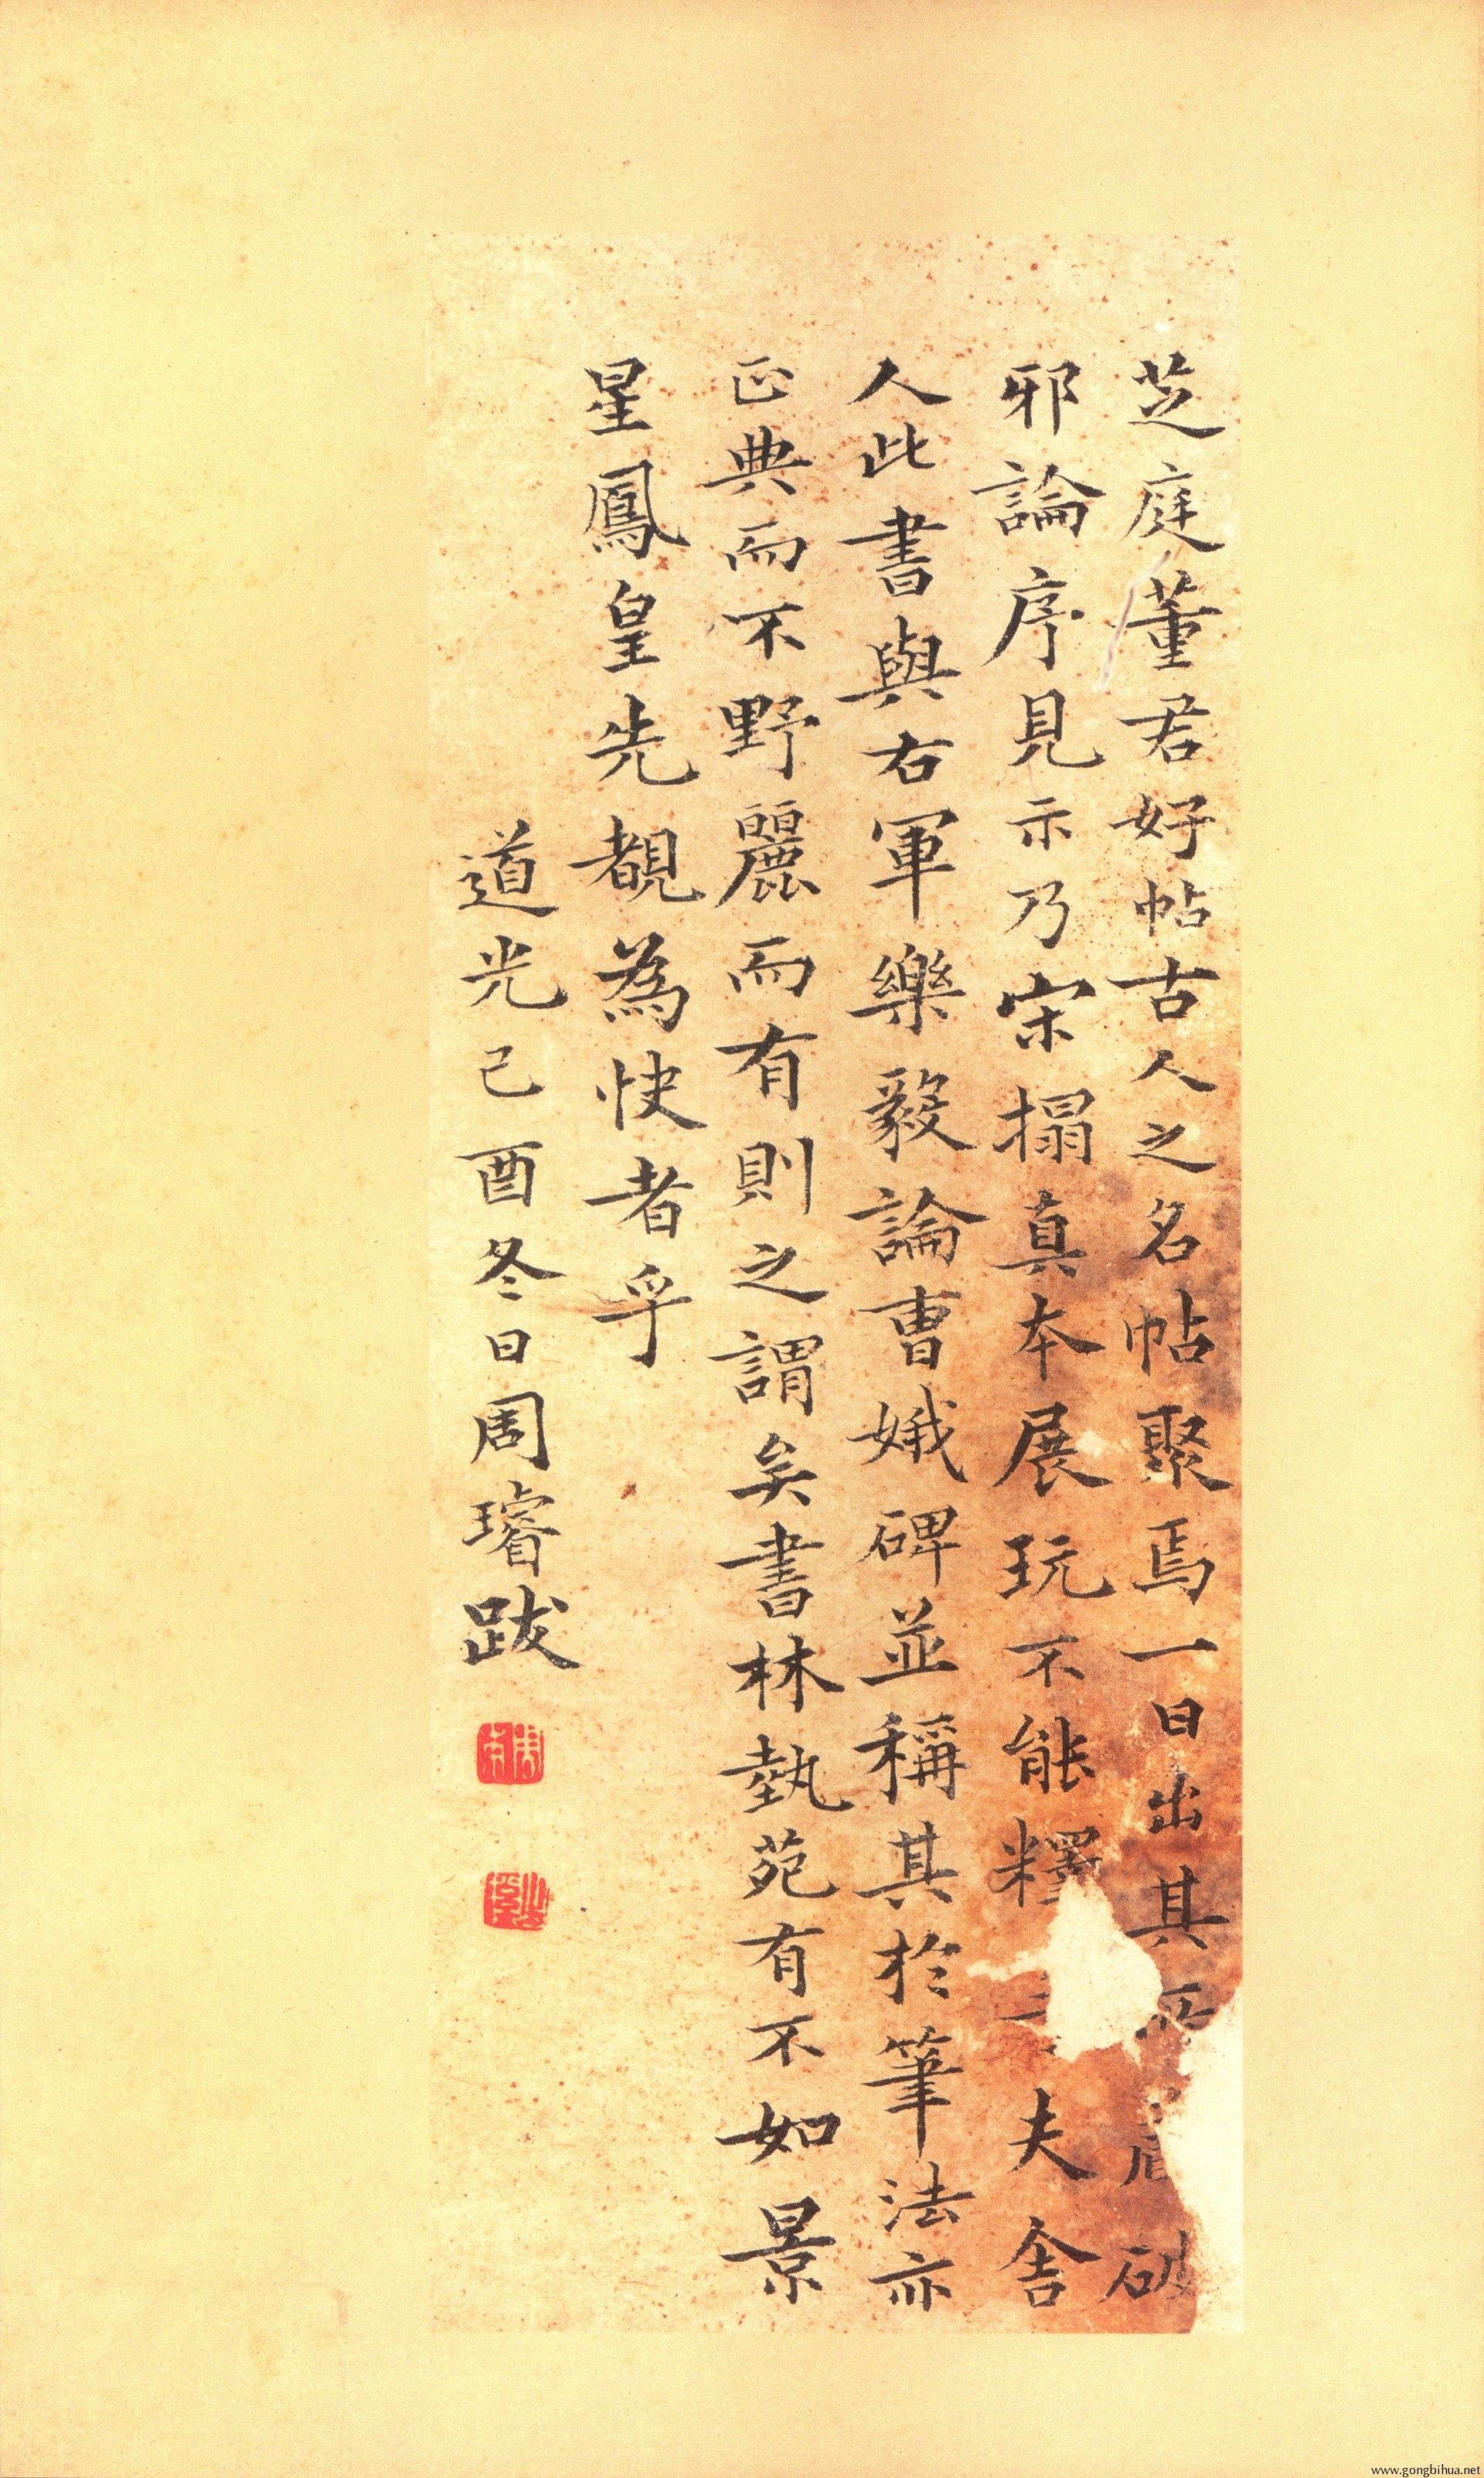 芝庭董君好帖古人之名帖聚焉一日出其所破
邪論序見示乃宋搨真本展玩不能釋夫舍
人此書與右軍樂毅論曹娥碑並稱其於筆法亦
正典而不野麗而有則之謂矣書林埶苑有不如景
星鳳皇先覩為快者乎
道光己酉冬日周璿跋
www.gongbihua.net